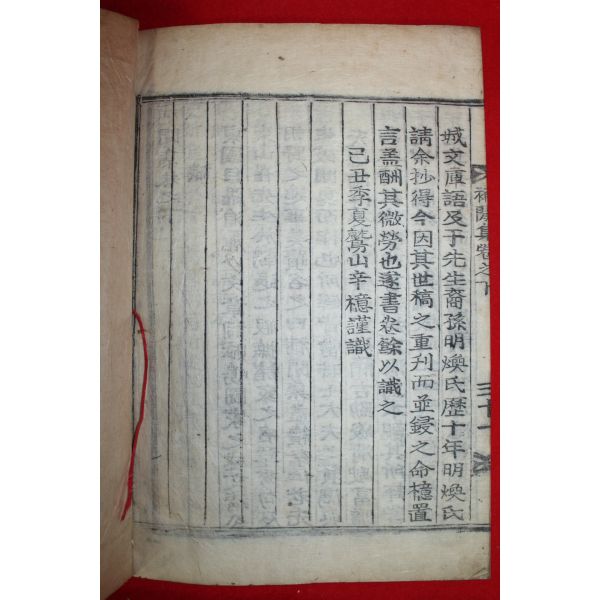 城文庫語及于先生裔孫明煥氏歷十年明煥氏
請余抄得今因其世稿之重刊而並鋟之命檍置
言盖酬其微勞也遂書卷餘以識之
己丑季夏鷲山辛檍謹識
集卷之下
三十一